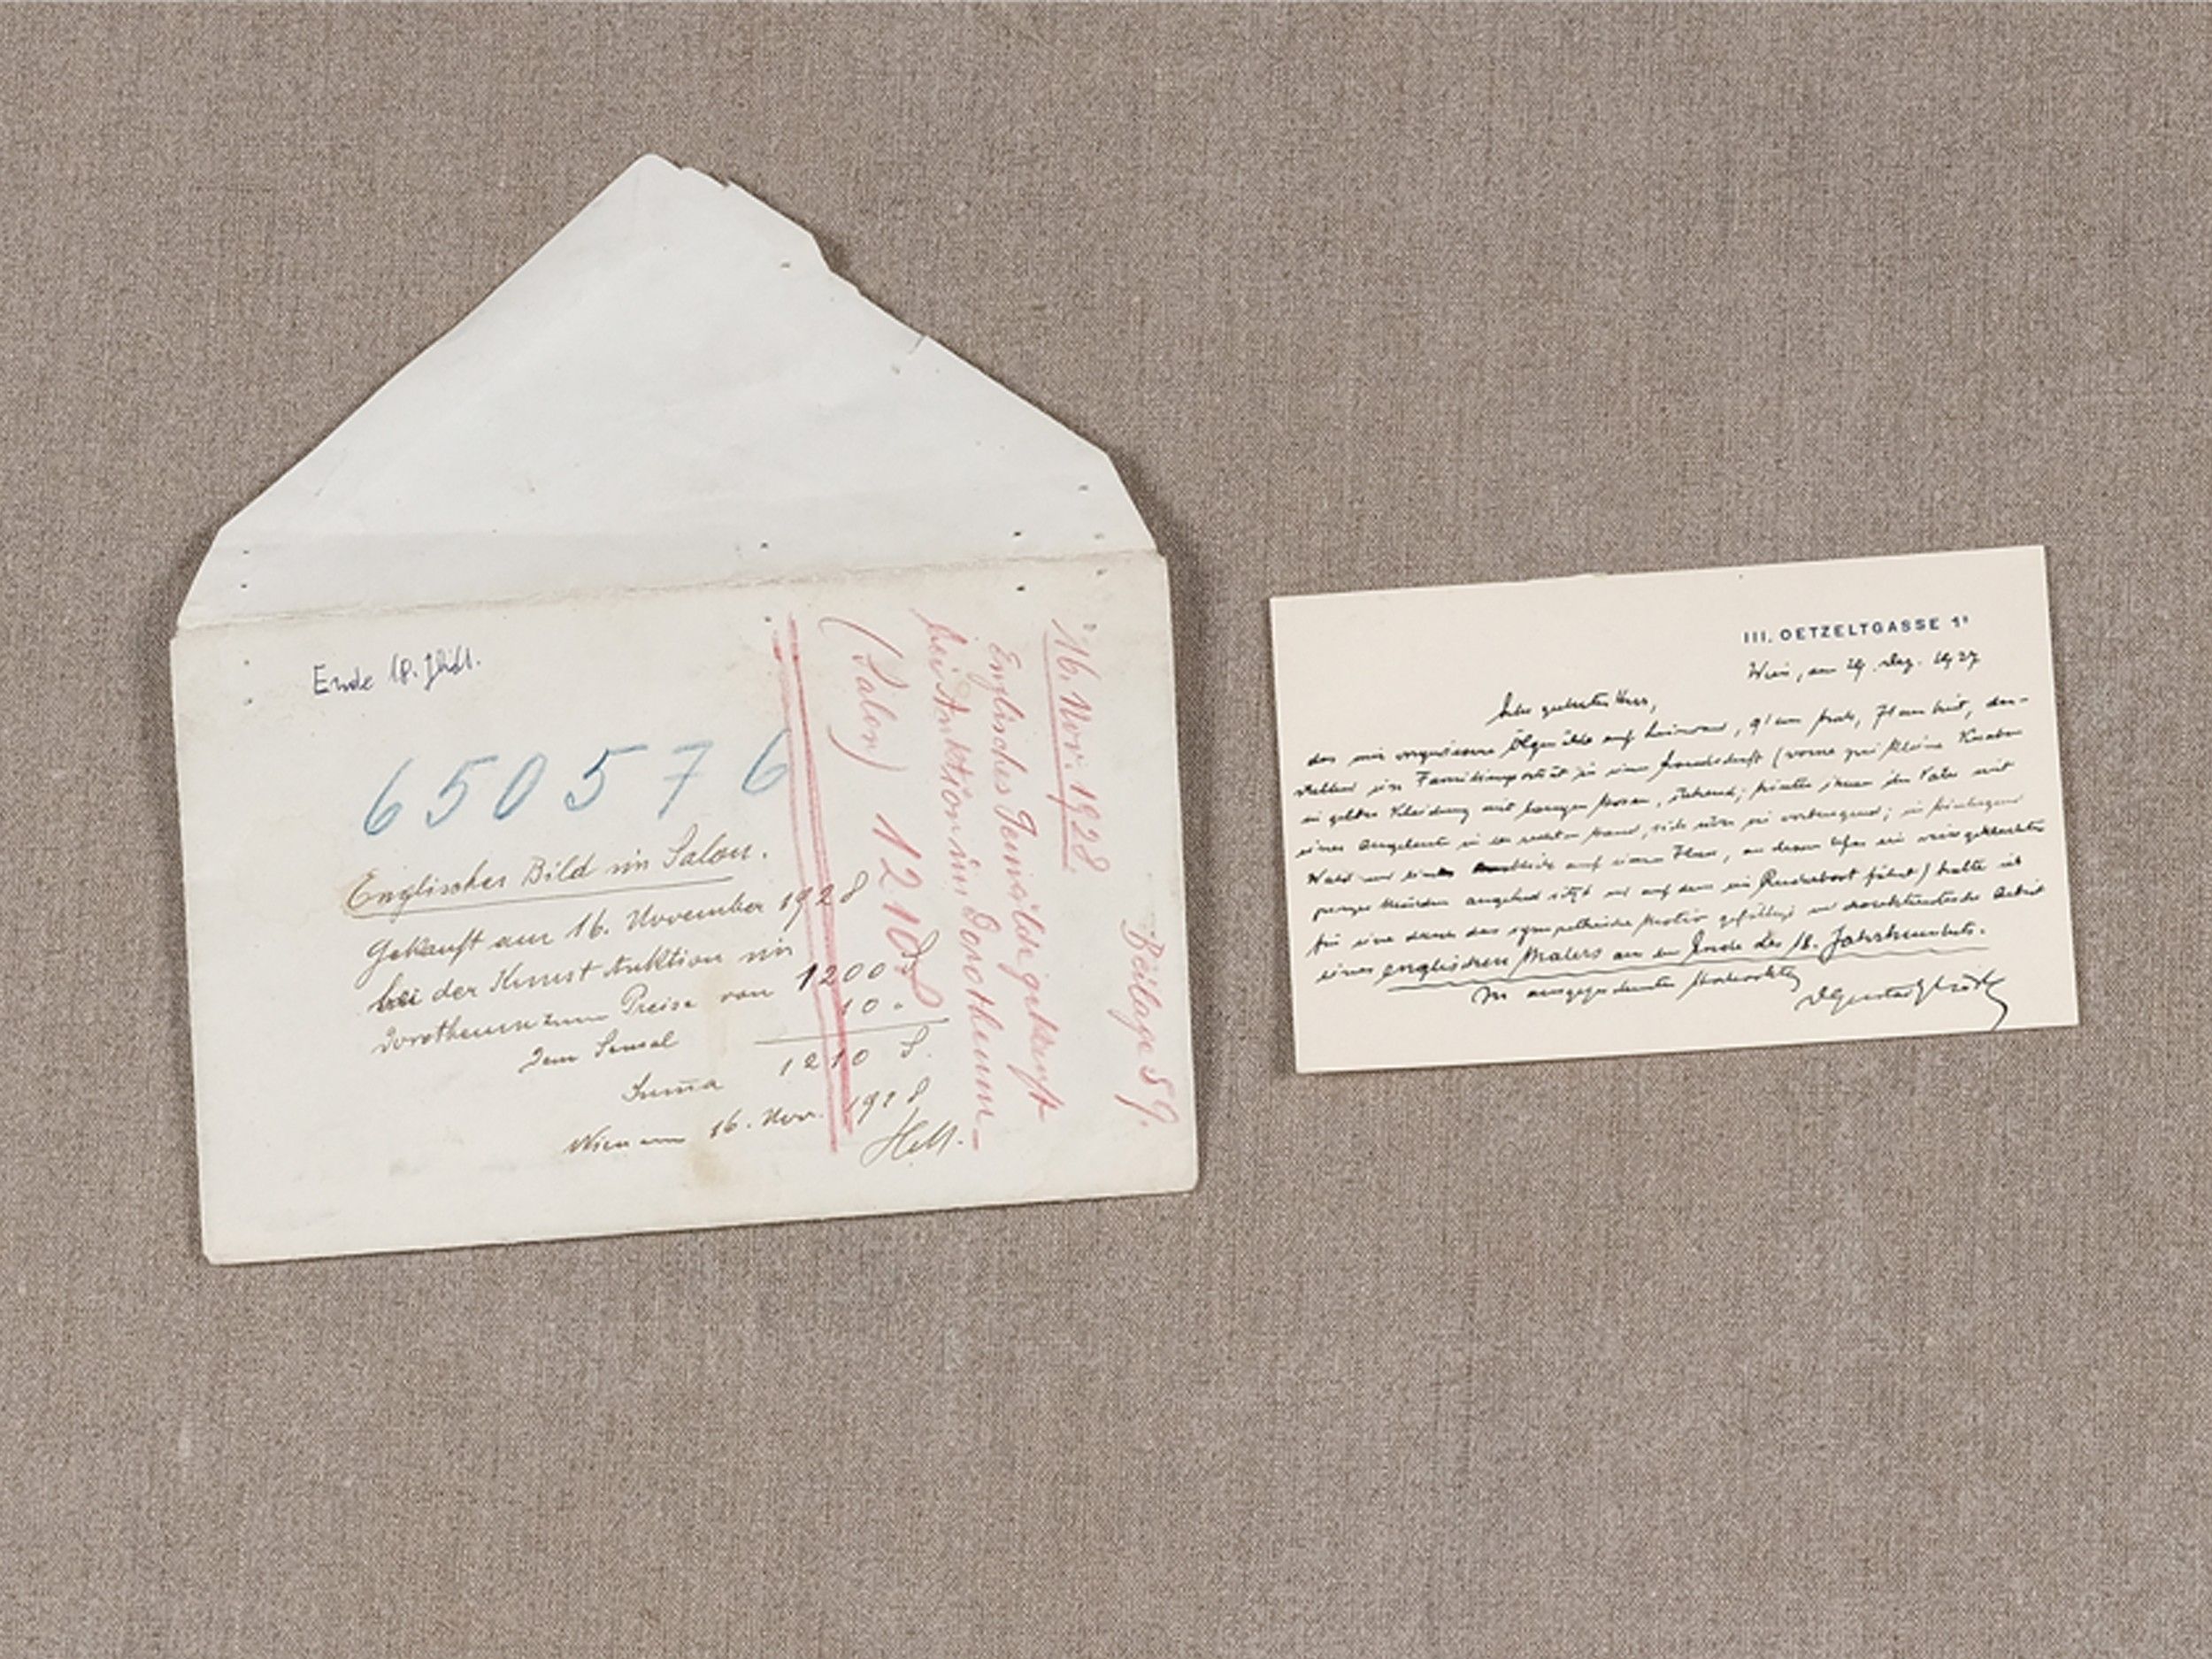 Ende 18. Jhdt.
650576
Englisches Bild im Salon.
Gekauft am 16. November 1928
bei der Kunst Auktion im
Dorotheum zum Preise von 1200
Dem Sensal 10.-
Summa 1210 S.
Wien am 16. Nov. 1928
Hell.
Beilage 59.
16. Nov. 1928
Englisches Gemälde gekauft
bei Auktion im Dorotheum-
(Salon) 1210 S
III. OETZELTGASSE 1
Wien, am 29. Dez. 1927
Sehr geehrter Herr,
das mir vorgewiesene Ölgemälde auf Leinwand, 91 cm hoch, 71 cm breit, dar-
stellend ein Familienporträt in einer Landschaft (vorne zwei kleine Knaben
in gelber Kleidung mit langen Hosen, ; hinter ihnen der Vater mit
einer Angelrute in der rechten Hand, sich über sie vorbeugend; im Hintergrund
Wald und ein auf einen Fluss, an dessen Ufer ein weissgekleidetes
junges Mädchen angelnd sitzt und auf dem ein Ruderboot fährt) halte ich
für eine durch das sympathische Motiv gefällige und charakteristische Arbeit
eines englischen Malers aus dem Ende des 18. Jahrhunderts.
In ausgezeichneter Hochachtung